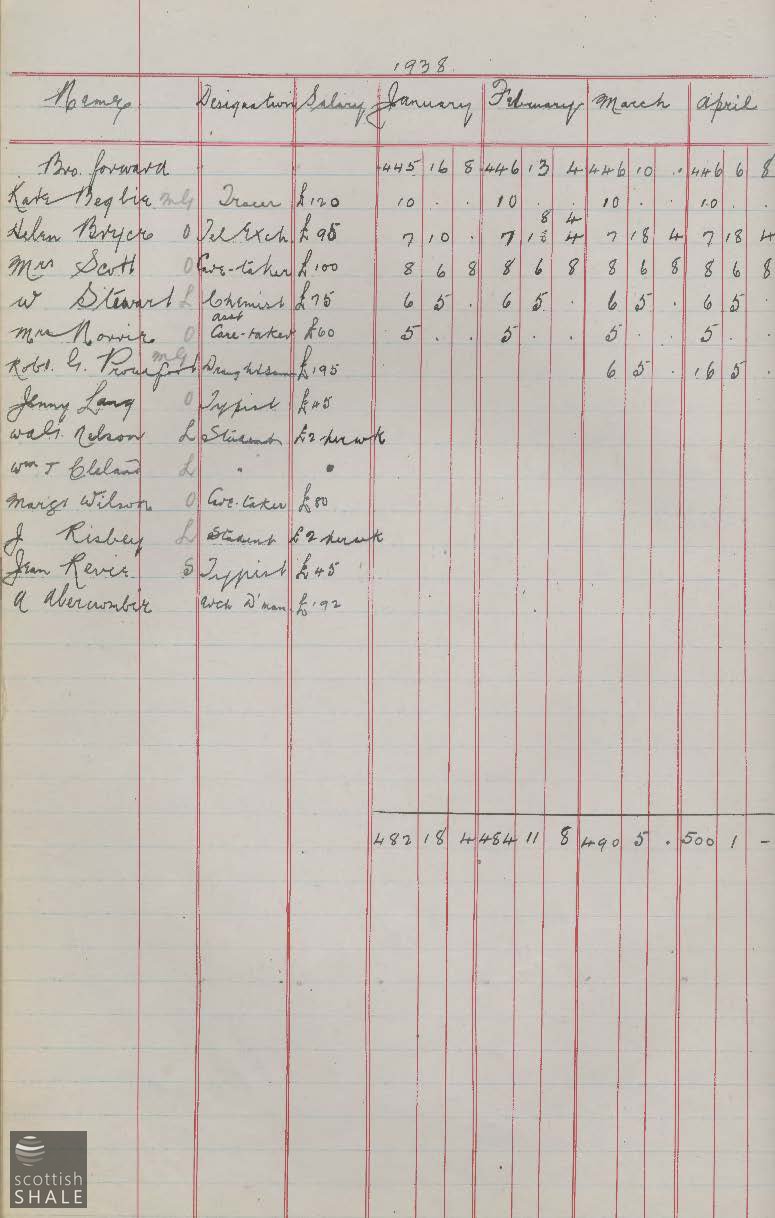 1938.
Names Designation Salary January February March April
Bro. forward 445 16 8 446 13 4 446 10 . 446 6 8
Kate Begbie mG Tracer £120 10 . . 10 . . 10 . . 10 . .
8 4
Helen Bryce O Tel Exch. £95 7 10 . 7 18 4 7 18 4 7 18 4
Mrs Scott O Care-taker £100 8 6 8 8 6 8 8 6 8 8 6 8
W Stewart L Chemist £75 6 5 . 6 5 . 6 5 . 6 5 .
asst
Mrs Norris O Care-taker £60 5 . . 5 . . 5 . . 5 . .
Robt. G. Proudfoot mG Draughtsman £195 6 5 . 16 5 .
Jenny Lang O Typist £45
Walt. Nelson L Student £2 per wk
Wm J Cleland L " "
Margt Wilson O Care-taker £80
J Risbey L Student £2 per wk
Jean Revie S Typist £45
A Abercrombie Arch D'man. £192
482 18 4 484 11 8 490 5 . 500 1 -
scottish
SHALE